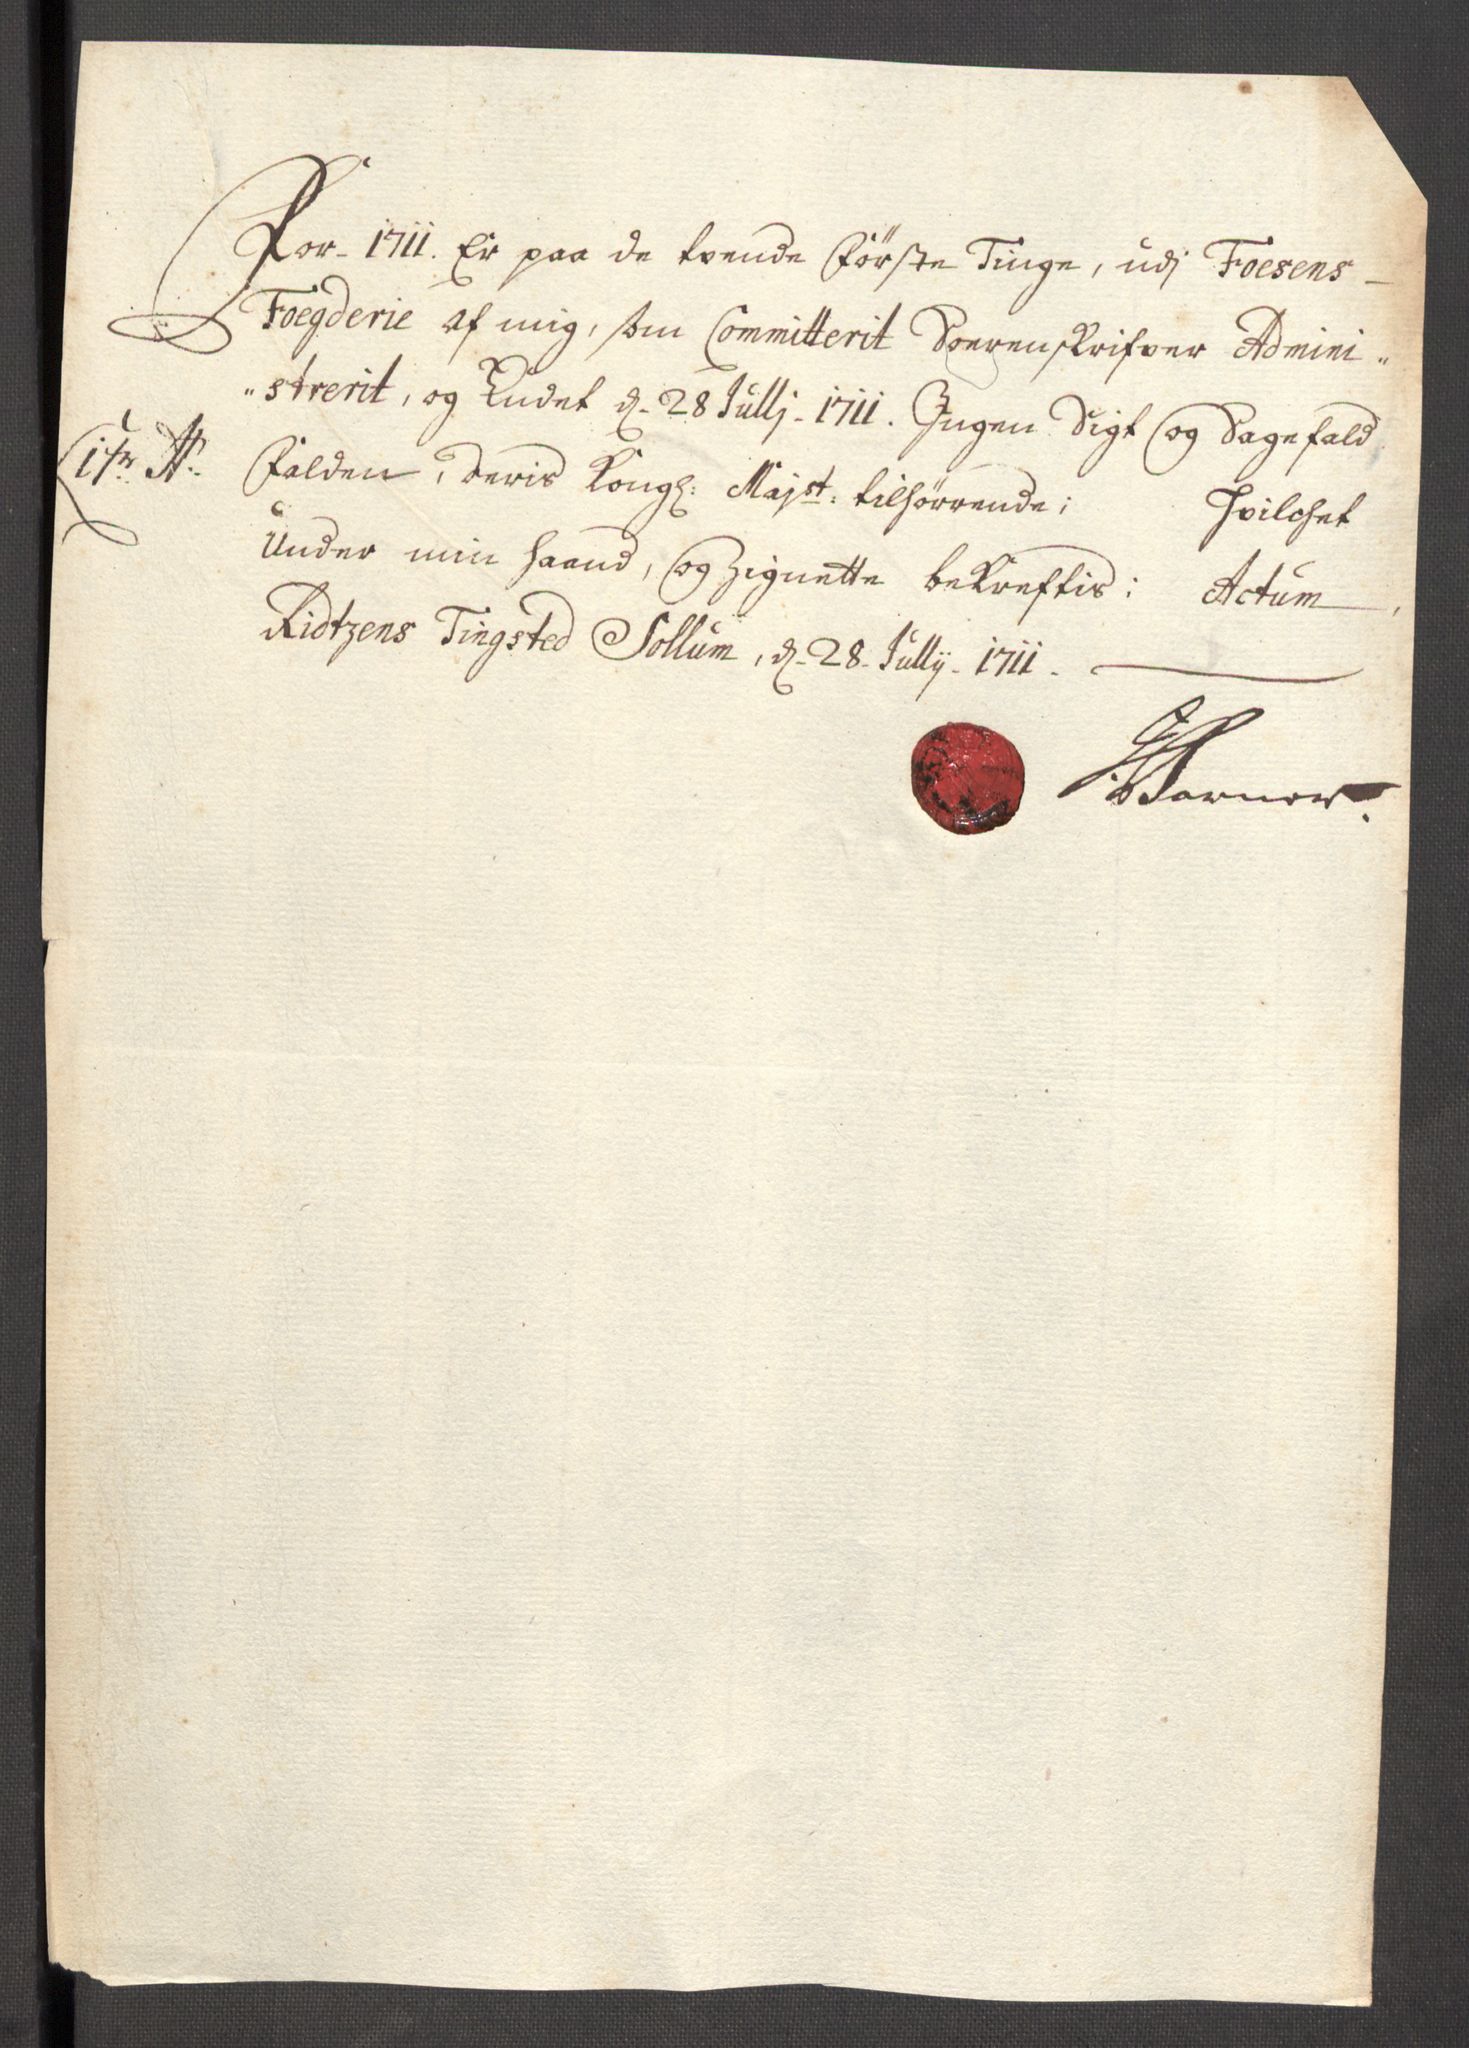 For 1711. Er paa de tvende Förste Tinge, udj Foesens
Foegderie af mig, som Committerit Soerenskrifver Admini„
„strerit, og Endet d. 28 Jullj 1711. Ingen Sigt og Sagefald
falden, deris Kongl: Majst: tilhörrende; Hvilchet
Under min Haand, og Zignette bekreftis; Actum
Ridtzens Tingsted Sollum, d. 28 Jullij 1711.